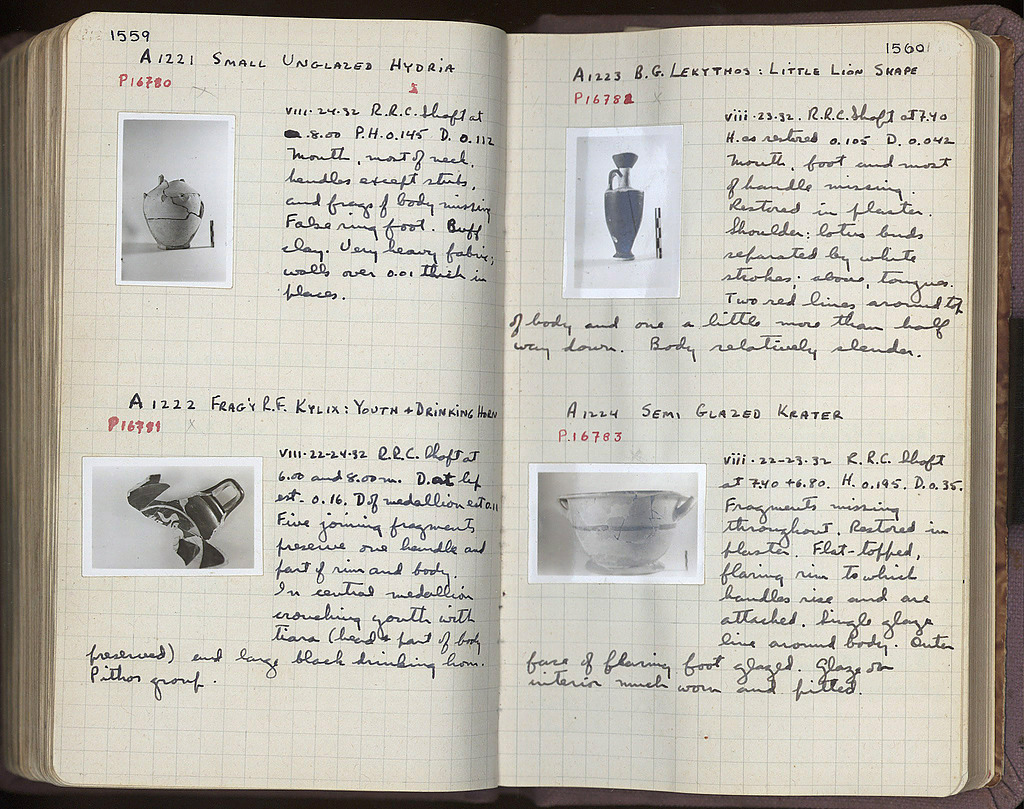 1559
A1221 SMALL UNGLAZED HYDRIA
P16780
viii-24-32 R.R.C. Shaft at
8.00 P.H. 0.145 D. 0.112
Mouth, most of neck,
handles except stubs,
and frags of body missing
False ring foot. Buff
clay. Very heavy fabric;
walls over 0.01 thick in
places.
A1222 FRAG'Y R.F. KYLIX: YOUTH + DRINKING HORN
P16781
viii-22-24-32 R.R.C. Shaft at
6.00 and 8.00m. D. at lip
est. 0.16. D of medallion est 0.11
Five joining fragments
preserve one handle and
part of rim and body.
In central medallion
crouching youth with
tiara (head & part of body
preserved) and large black drinking horn.
Pithos group.
1560
A1223 B.G. LEKYTHOS: LITTLE LION SHAPE
P16782
viii-23-32. R.R.C. Shaft at 7.40
H. as restored 0.105 D. 0.042
Mouth, foot and most
of handle missing.
Restored in plaster.
Shoulder: lotus buds
separated by white
strokes; above, tongues.
Two red lines around top
of body and one a little more than half
way down. Body relatively slender.
A1224 SEMI GLAZED KRATER
P.16783
viii-22-23-32 R.R.C. Shaft
at 7.40 + 6.80. H. 0.195. D. 0.35.
Fragments missing
throughout. Restored in
plaster. Flat-topped,
flaring rim to which
handles rise and are
attached. Single glaze
line around body. Outer
face of flaring foot glazed. Glaze on
interior much worn and pitted.